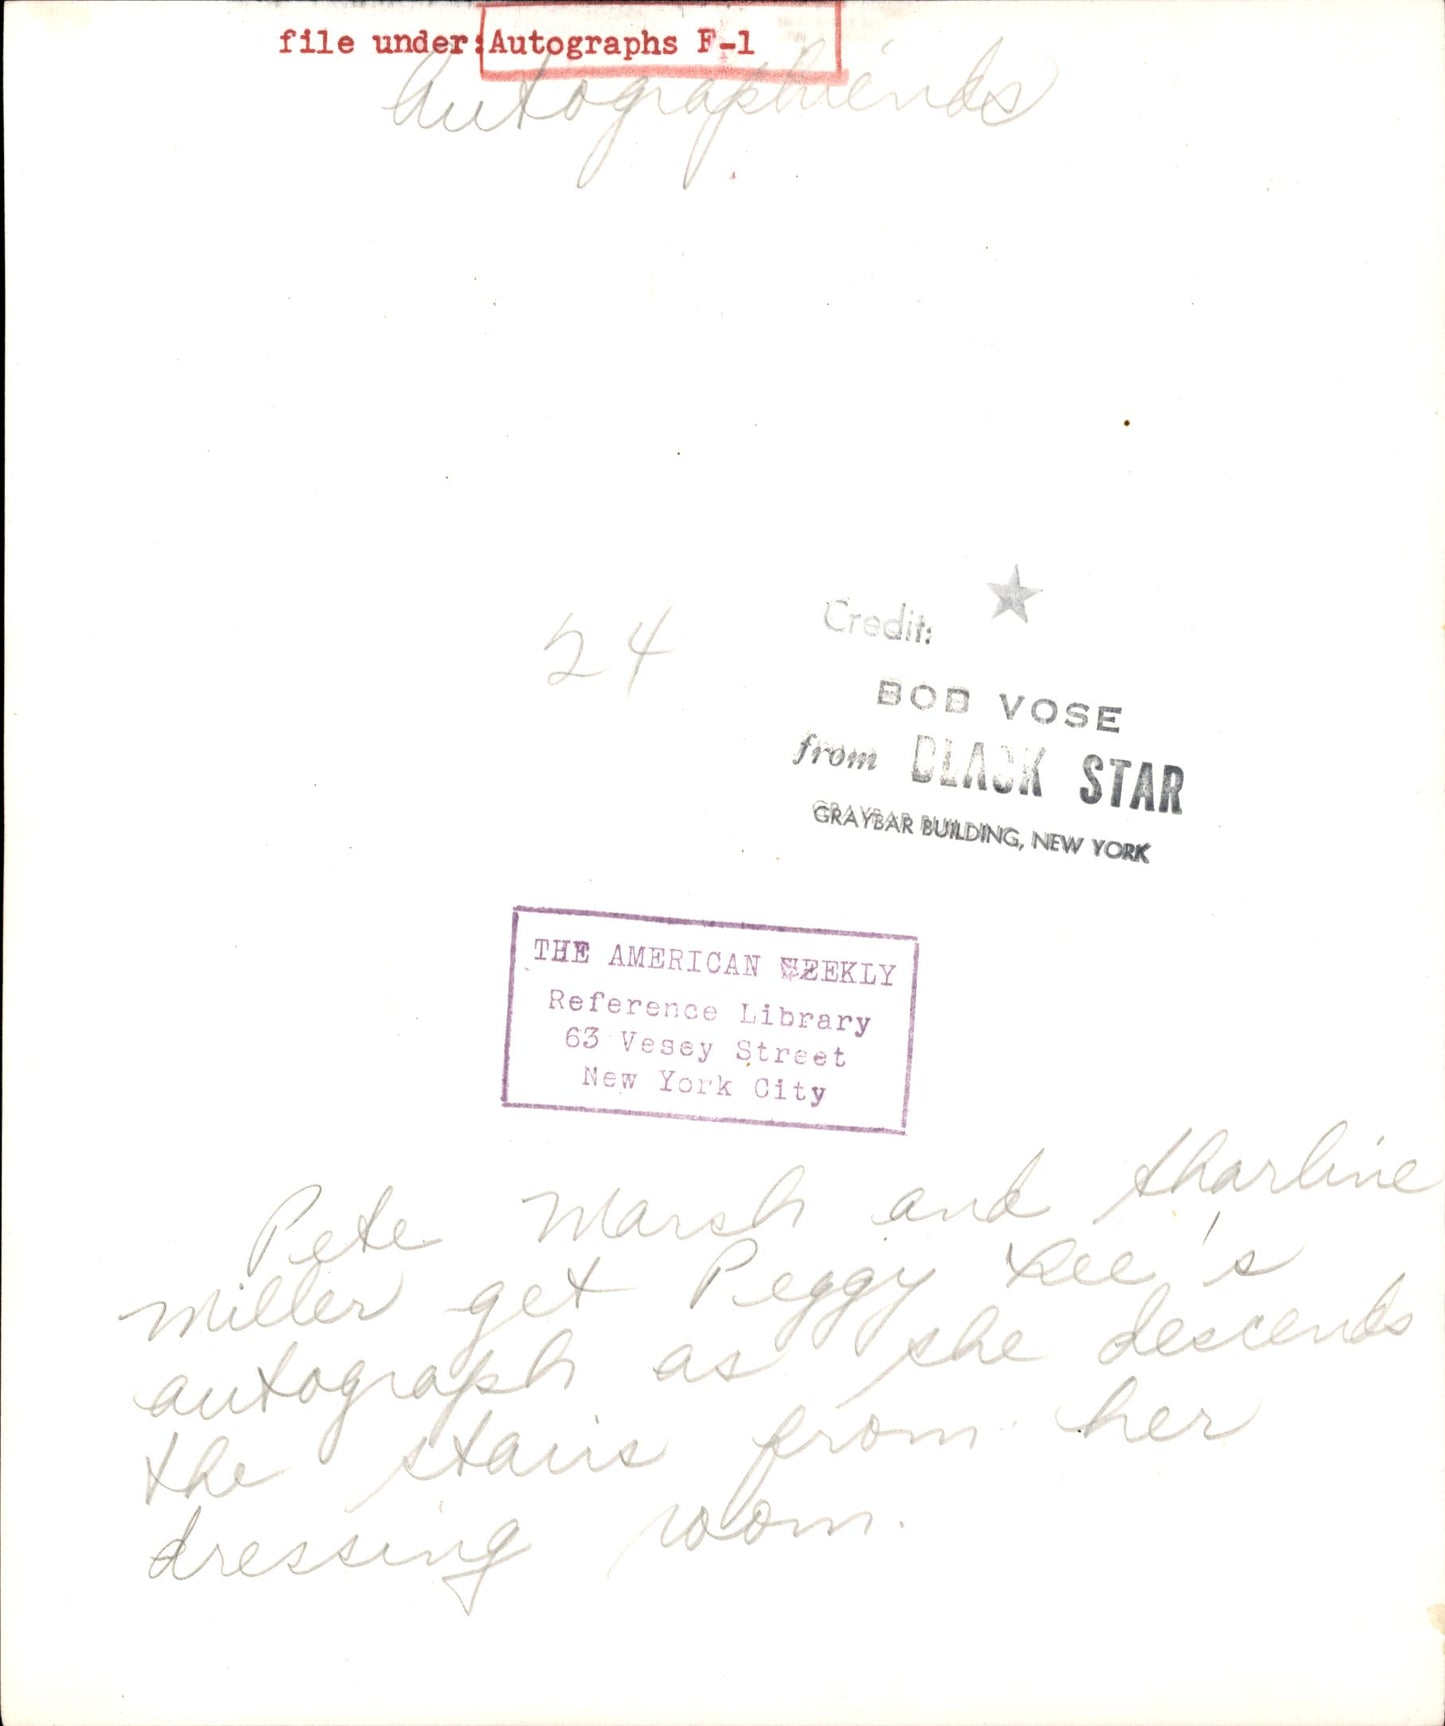 file under: Autographs F-1
Autographiends
24
Credit:
BOB VOSE
from BLACK STAR
GRAYBAR BUILDING, NEW YORK
THE AMERICAN WEEKLY
Reference Library
63 Vesey Street
New York City
Pete Marsh and Sharline
Miller get Peggy Lee's
autograph as she descends
the stairs from her
dressing room.